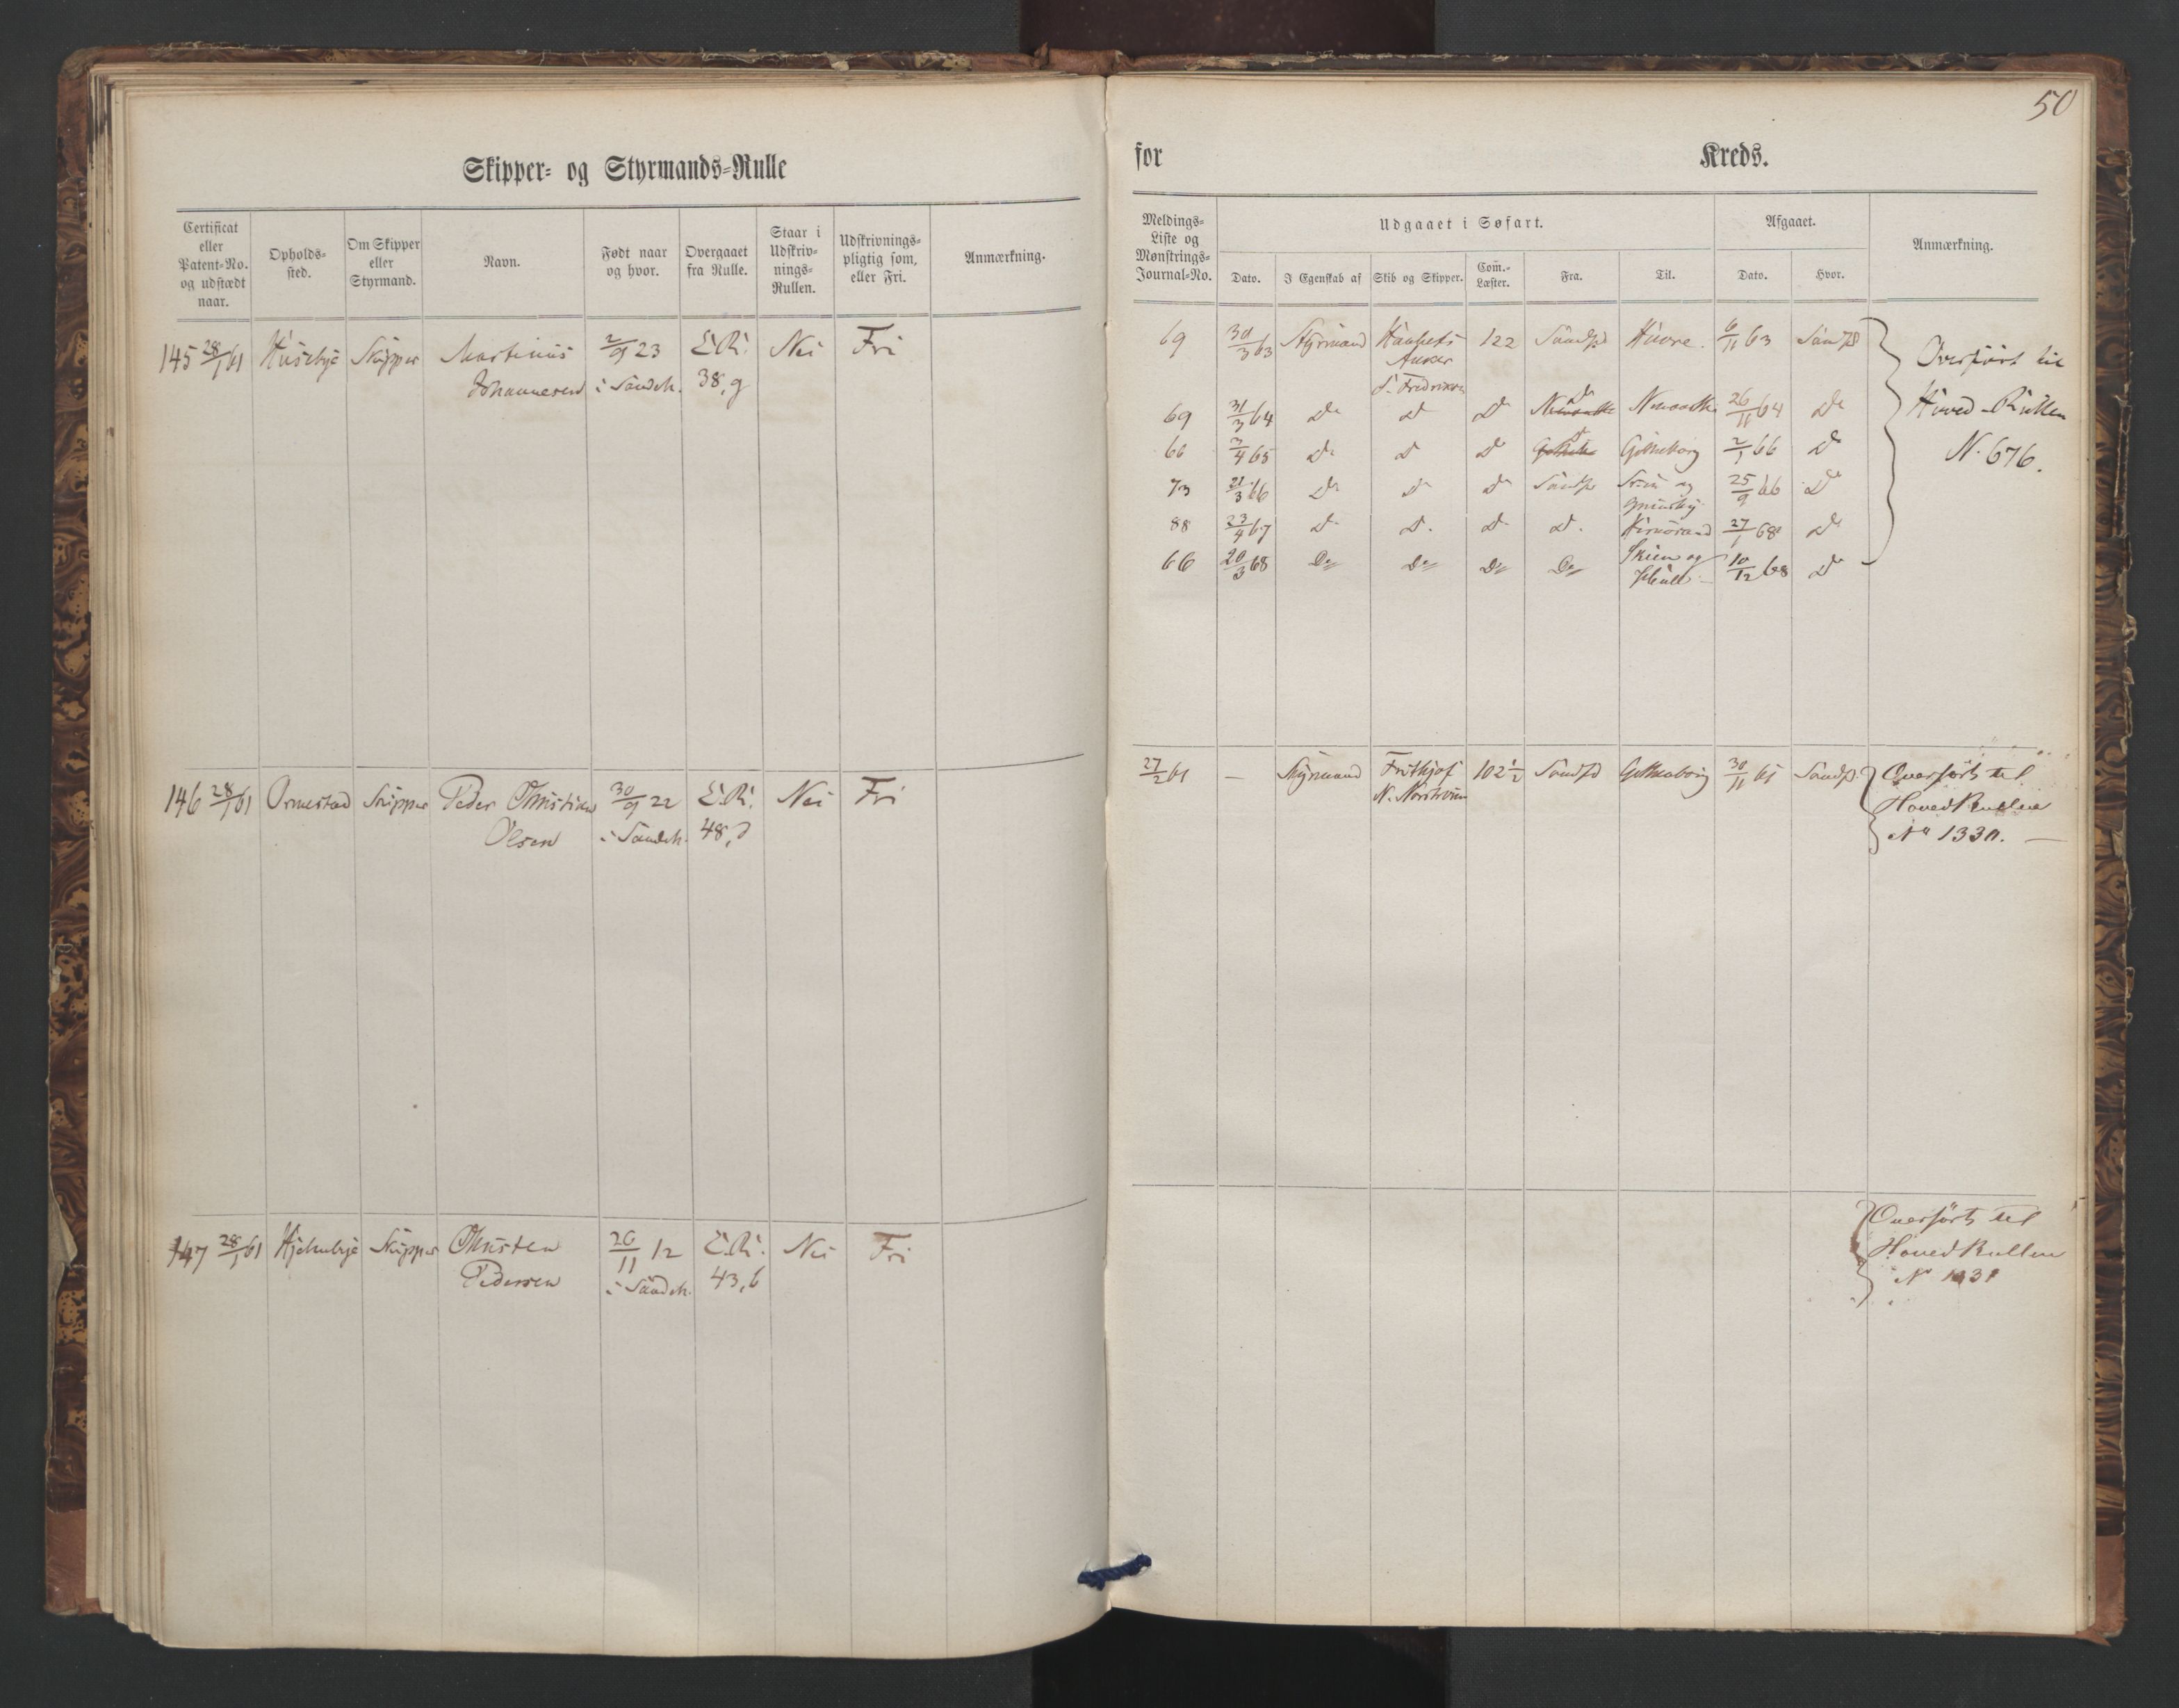 50
Skipper- og Styrmands-Rulle
for Kreds.
Certificat eller Patent-No. og udstædt naar.
Opholds-sted.
Om Skipper eller Styrmand.
Navn.
Født naar og hvor.
Overgaaet fra Rulle.
Staar i Udskriv-nings-Rullen.
Udskrivnings-pligtig som, eller Fri.
Anmærkning.
Meldings-Liste og Mønstrings-Journal-No.
Udgaaet i Søfart.
Dato.
I Egenskab af
Skib og Skipper.
Com.-Læster.
Fra.
Til.
Afgaaet.
Dato.
Hvor.
Anmærkning.
145 28/1 61 Huseby Skipper Martinus 2/9 23 E.R. Nei Fri
Johannesen i Sandeh. 38,9
69 30/3 63 Styrmand Haabets 122 Sandfd Havre. 6/11 63 Sandfd
Anker
S. Fredriksen
69 31/3 64 Do D D Do 26/11 64 Do
66 3/4 65 Do D D D Gøtheborg 2/1 66 D
73 21/3 66 Do D D Sandfd og 25/9 66 D
88 23/4 67 D D. D D. 27/1 68 D
66 20/3 68 Do Do Do Do Skien og 10/12 68 D
Overført til
Hoved-Rullen
N. 676.
146 28/1 61 Ormestad Skipper Peder Christian 30/9 22 E.R. Nei Fri
Olsen i Sandeh. 48,
27/2 61 — Styrmand Frithjof 102 1/2 Sandfd Gøtheborg 30/11 61 Sandfd
Overført til
Hoved Rullen
No 1330. —
147 28/1 61 Hjelmbye Skipper Christen 26/11 12 E.R. Nei Fri
Pedersen i Sandeh. 43,6
Overført til
Hoved Rullen